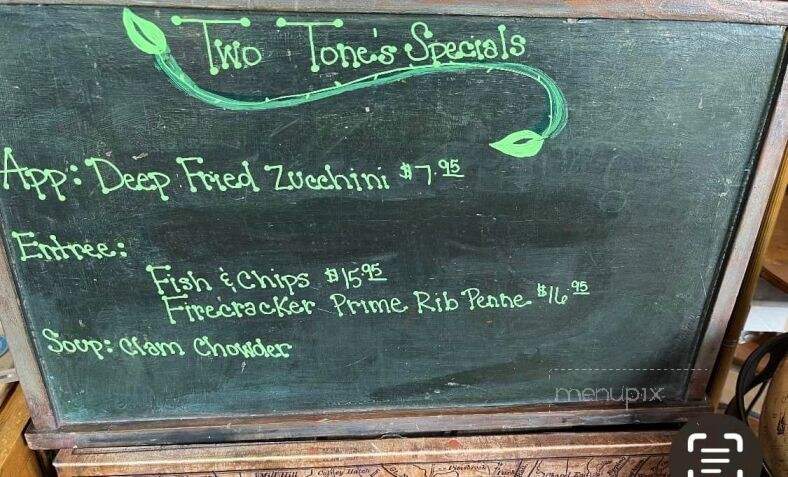 Two Tone's Specials
App: Deep Fried Zucchini $7.95
Entree:
Fish & Chips $15.95
Firecracker Prime Rib Penne $16.95
Soup: Clam Chowder
menupix